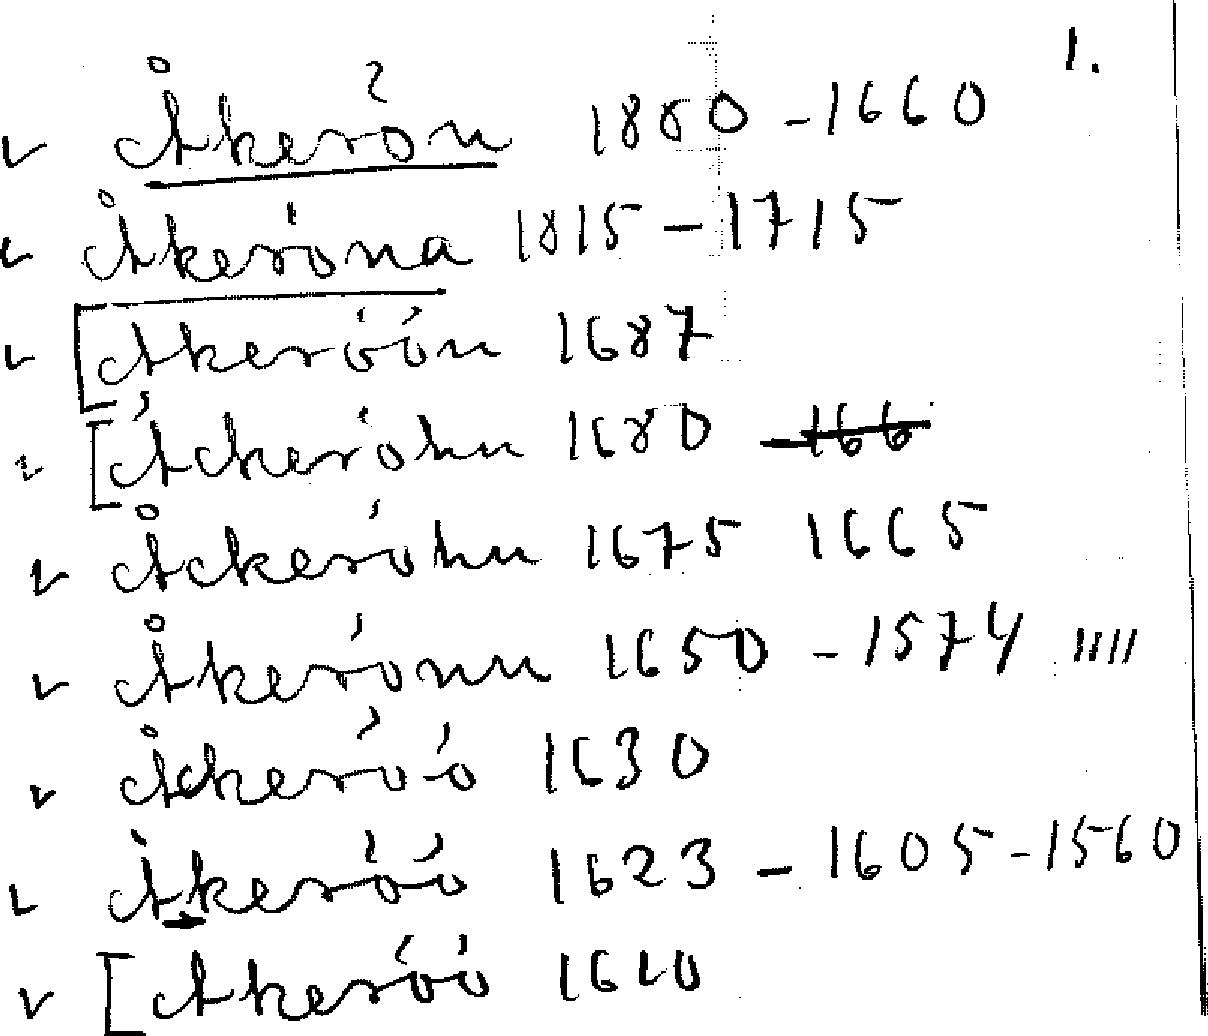 1.
✓ Åkerön 1880 - 1660
✓ Åkeröna 1815 - 1715
✓ [Akeröön 1687
✓ [Åckeröhn 1680 166
✓ Åckeröhn 1675 1665
✓ Åkerönn 1650 - 1574 IIIII
✓ Åckeröö 1630
✓ Åkeröö 1623 - 1605 - 1560
✓ [Akeröö 1610